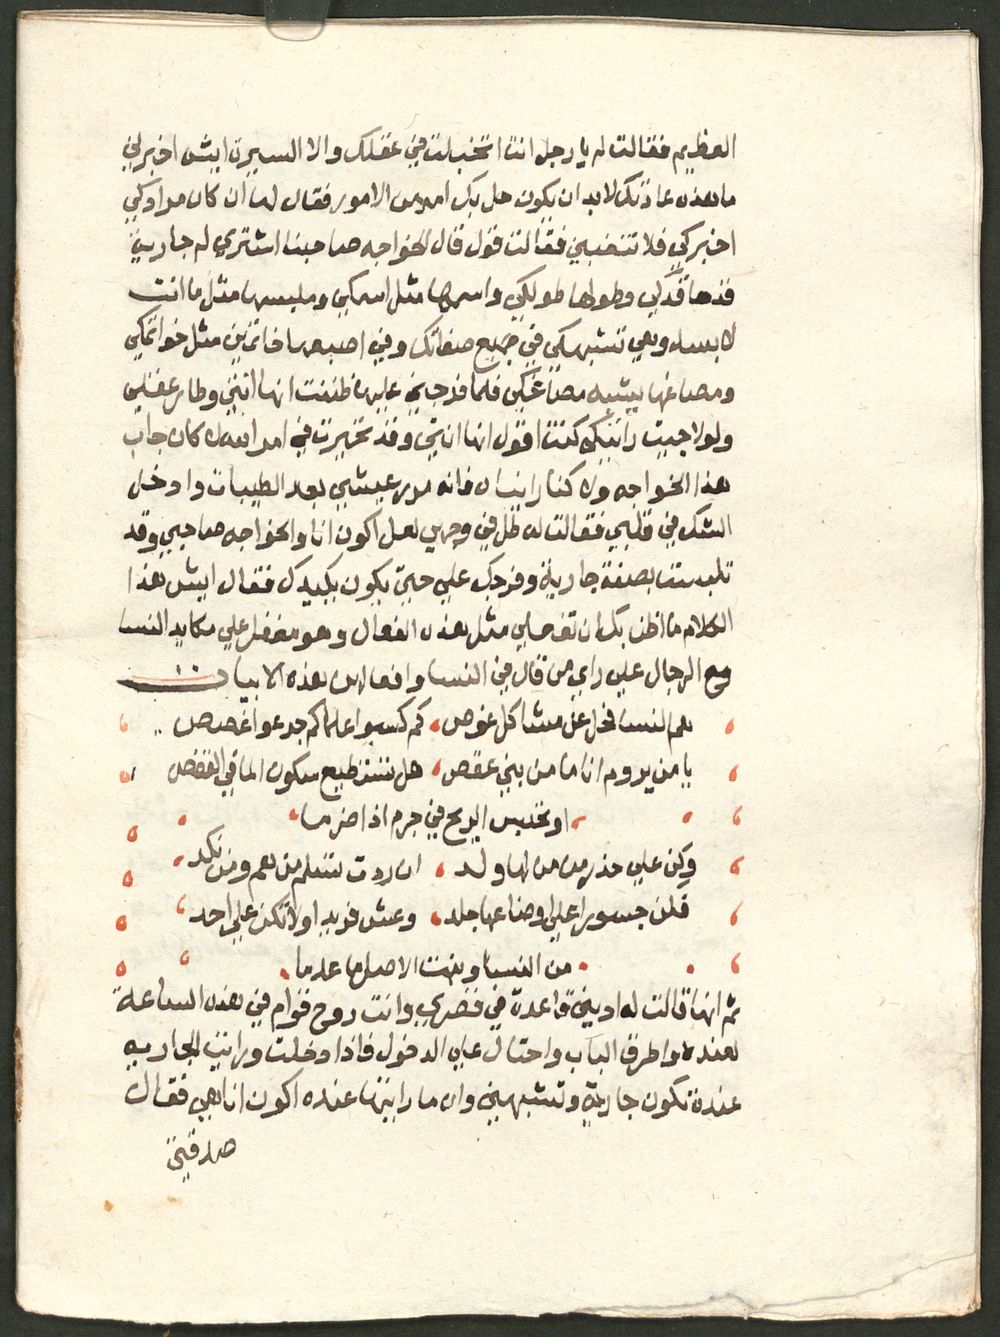 العظيم فقالت له يا رجل انت اتخبلت في عقلك والا السيرة ايش اخبرني
ما هذه عادتك لا بد ان يكون حل بك امر من الامور فقال لها ان كان مرادكي
اخبركي فلا تغضبي فقالت قول قال الخواجه صاحبنا اشتري له جارية
قدها قدكي وطولها طولكي واسمها مثل اسمكي وملبسها مثل ما انت
لابساه وهي تشبهكي في جميع صفاتك وفي اصبعها خاتمين مثل خواتمكي
ومصاغها يشبه مصاغكي فلما فرجني عليها ظننت انها انتي وطار عقلي
ولولا جيت رايتكي كنت اقول انها انتي وقد تحيرت في امر الله لا كان جاب
هذا الخواجه ولا كنا رايناه فانه مرر عيشي بعد الطيبات وادخل
الشك في قلبي فقالت له طل في وجهي لعل اكون انا والخواجه صاحبي وقد
تلبست بصفة جارية وفرجك علي حتي يكون يكيدك فقال ايش هذا
الكلام ما اظن بك ان تفعلي مثل هذه الفعال وهو مغفل علي مكايد النسا
مع الرجال علي راي من قال في النسا وافعالهن هذه الابيات
هم النسا فخل عن مشاكل غوص كم كسبوا علما كم جدعوا غصص
يا من يروم انا ما من بني عقص هل تستطيع سكون الما في القفص
او تحبس الريح في جرم اذا ضرما
وكن علي حذر من من لها ولد ان ردت تسلم من هم ومن نكد
فلن جسورا علي اوضاعها جلد وعش فريدا ولا تكن علي احد
من النسا وبنت الاصل ها عدما
ثم انها قالت له اديني قاعدة في قصري وانت روح قوام في هذه الساعة
لعنده واطرق الباب واحتال علي الدخول فاذا دخلت ورايت الجاريه
عنده تكون جارية وتشبهني وان ما رايتها عنده اكون انا هي فقال
صدقتي